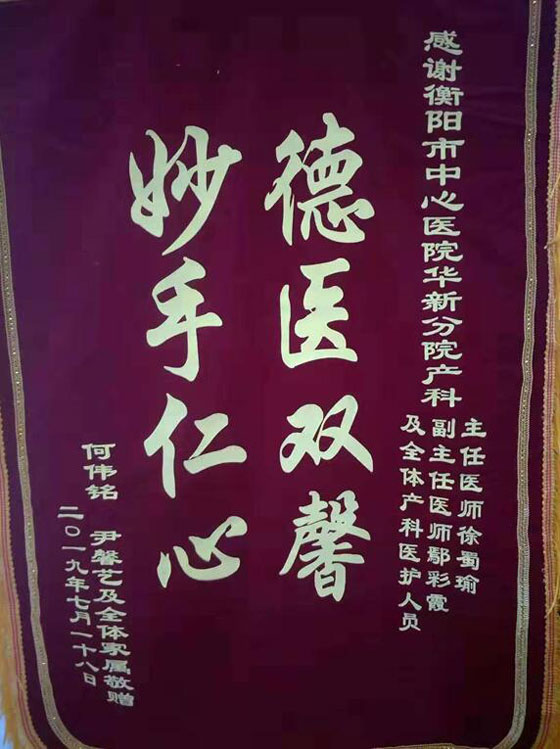 感谢衡阳市中心医院华新分院产科
主任医师徐蜀瑜
副主任医师鄢彩霞
及全体产科医护人员
德医双馨
妙手仁心
何伟铭 尹馨艺及全体家属敬赠
二〇一九年七月一十八日